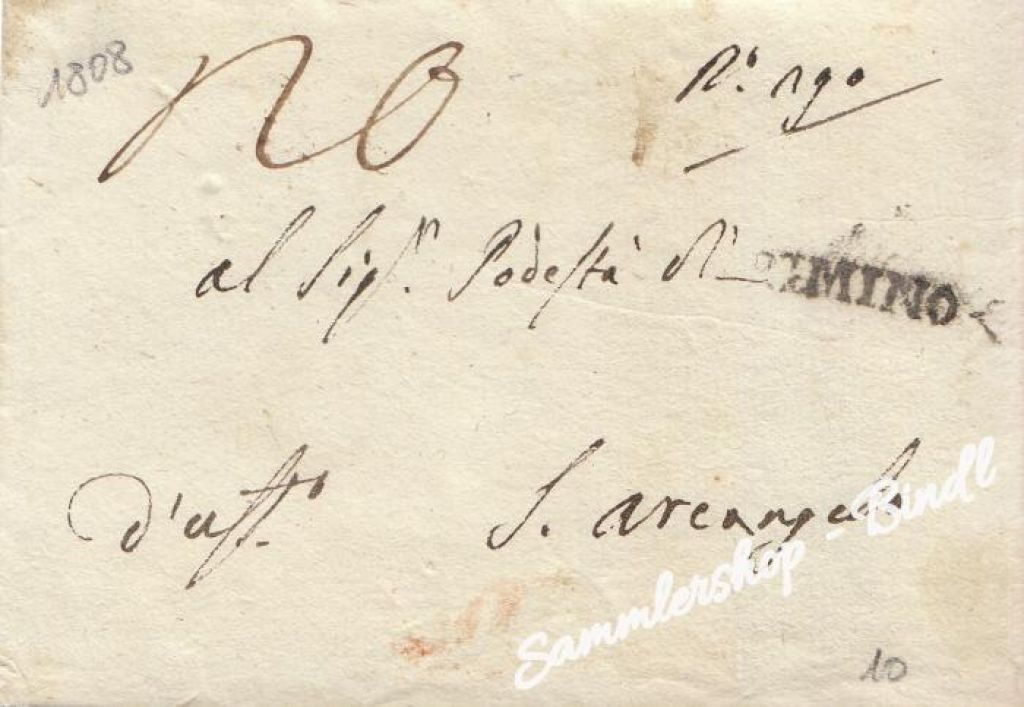 1808
N.° 190
al Sig.r Podestà di
RIMINO
d'uff.o S. Arcangelo
Sammlershop - Bindl
10